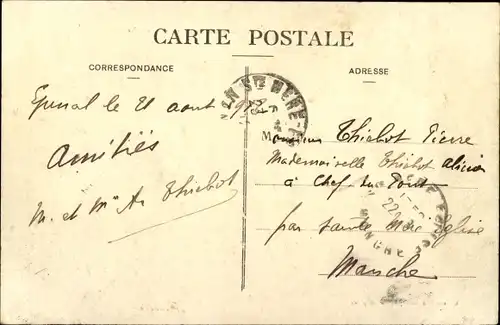 CARTE POSTALE
CORRESPONDANCE
ADRESSE
Epinal le 21 aout
Amitiés
M. et Me A. Thiebot
Monsieur Thiebot Pierre
Mademoiselle Thiebot
à Chef du Pont
par Sainte Mère Eglise
Manche